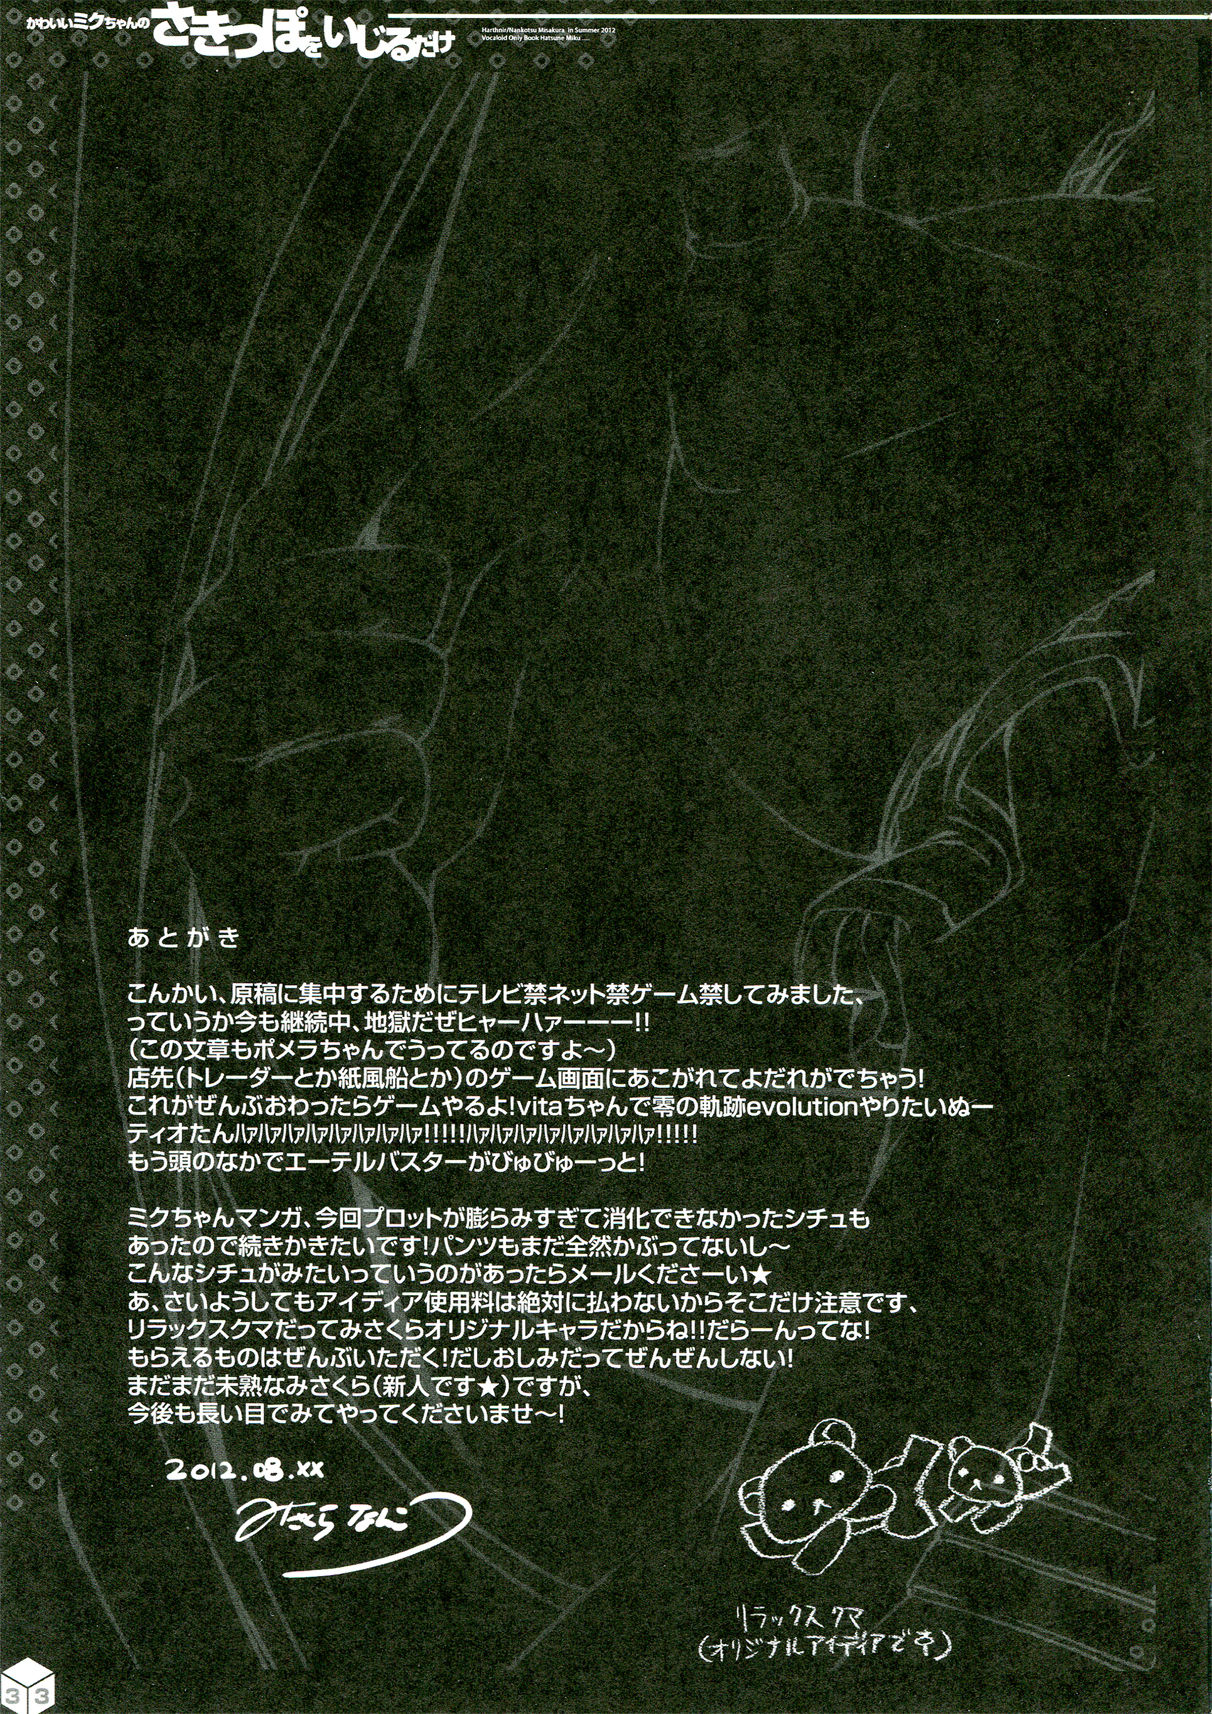 かわいいミクちゃんの さきっぽをいじるだけ
Harthnir/Nankotsu Misakura in Summer 2012
Vocaloid Only Book Hatsune Miku ......
あとがき
こんかい、原稿に集中するためにテレビ禁ネット禁ゲーム禁してみました、
っていうか今も継続中、地獄だぜヒャーハァーーー!!
(この文章もポメラちゃんでうってるのですよ～)
店先(トレーダーとか紙風船とか)のゲーム画面にあこがれてよだれがでちゃう!
これがぜんぶおわったらゲームやるよ!vitaちゃんで零の軌跡evolutionやりたいぬー
ティオたんﾊｧﾊｧﾊｧﾊｧﾊｧﾊｧﾊｧﾊｧ!!!!!ﾊｧﾊｧﾊｧﾊｧﾊｧﾊｧﾊｧﾊｧ!!!!!
もう頭のなかでエーテルバスターがびゅびゅーっと!
ミクちゃんマンガ、今回プロットが膨らみすぎて消化できなかったシチュも
あったので続きかきたいです!パンツもまだ全然かぶってないし～
こんなシチュがみたいっていうのがあったらメールくださーい★
あ、さいようしてもアイディア使用料は絶対に払わないからそこだけ注意です、
リラックスクマだってみさくらオリジナルキャラだからね!!だらーんってな!
もらえるものはぜんぶいただく!だしおしみだってぜんぜんしない!
まだまだ未熟なみさくら(新人です★)ですが、
今後も長い目でみてやってくださいませ～!
2012.08.xx
みさくらなんこつ
リラックスクマ
(オリジナルアイディアです)
33